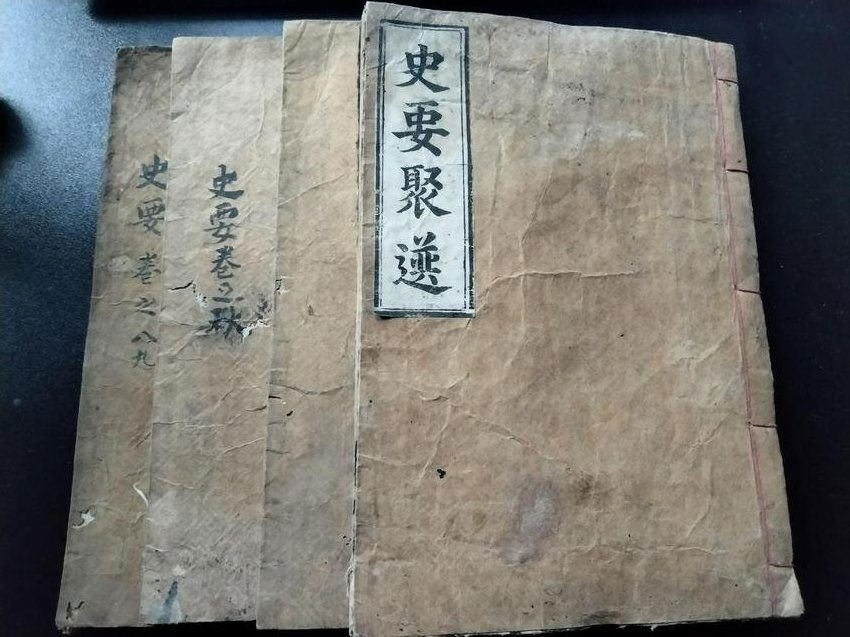 史要聚選
史要卷之秋
史要卷之八九